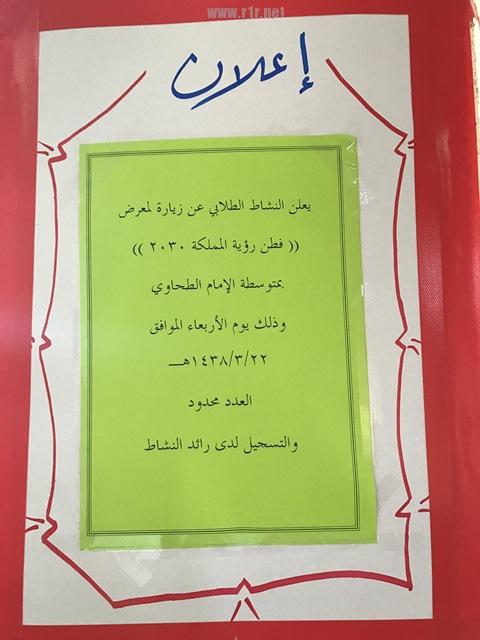 www.r1r.net
إعلان
يعلن النشاط الطلابي عن زيارة لمعرض
(( فطن رؤية المملكة ٢٠٣٠ ))
بمتوسطة الإمام الطحاوي
وذلك يوم الأربعاء الموافق
١٤٣٨/٣/٢٢هـــ
العدد محدود
والتسجيل لدى رائد النشاط